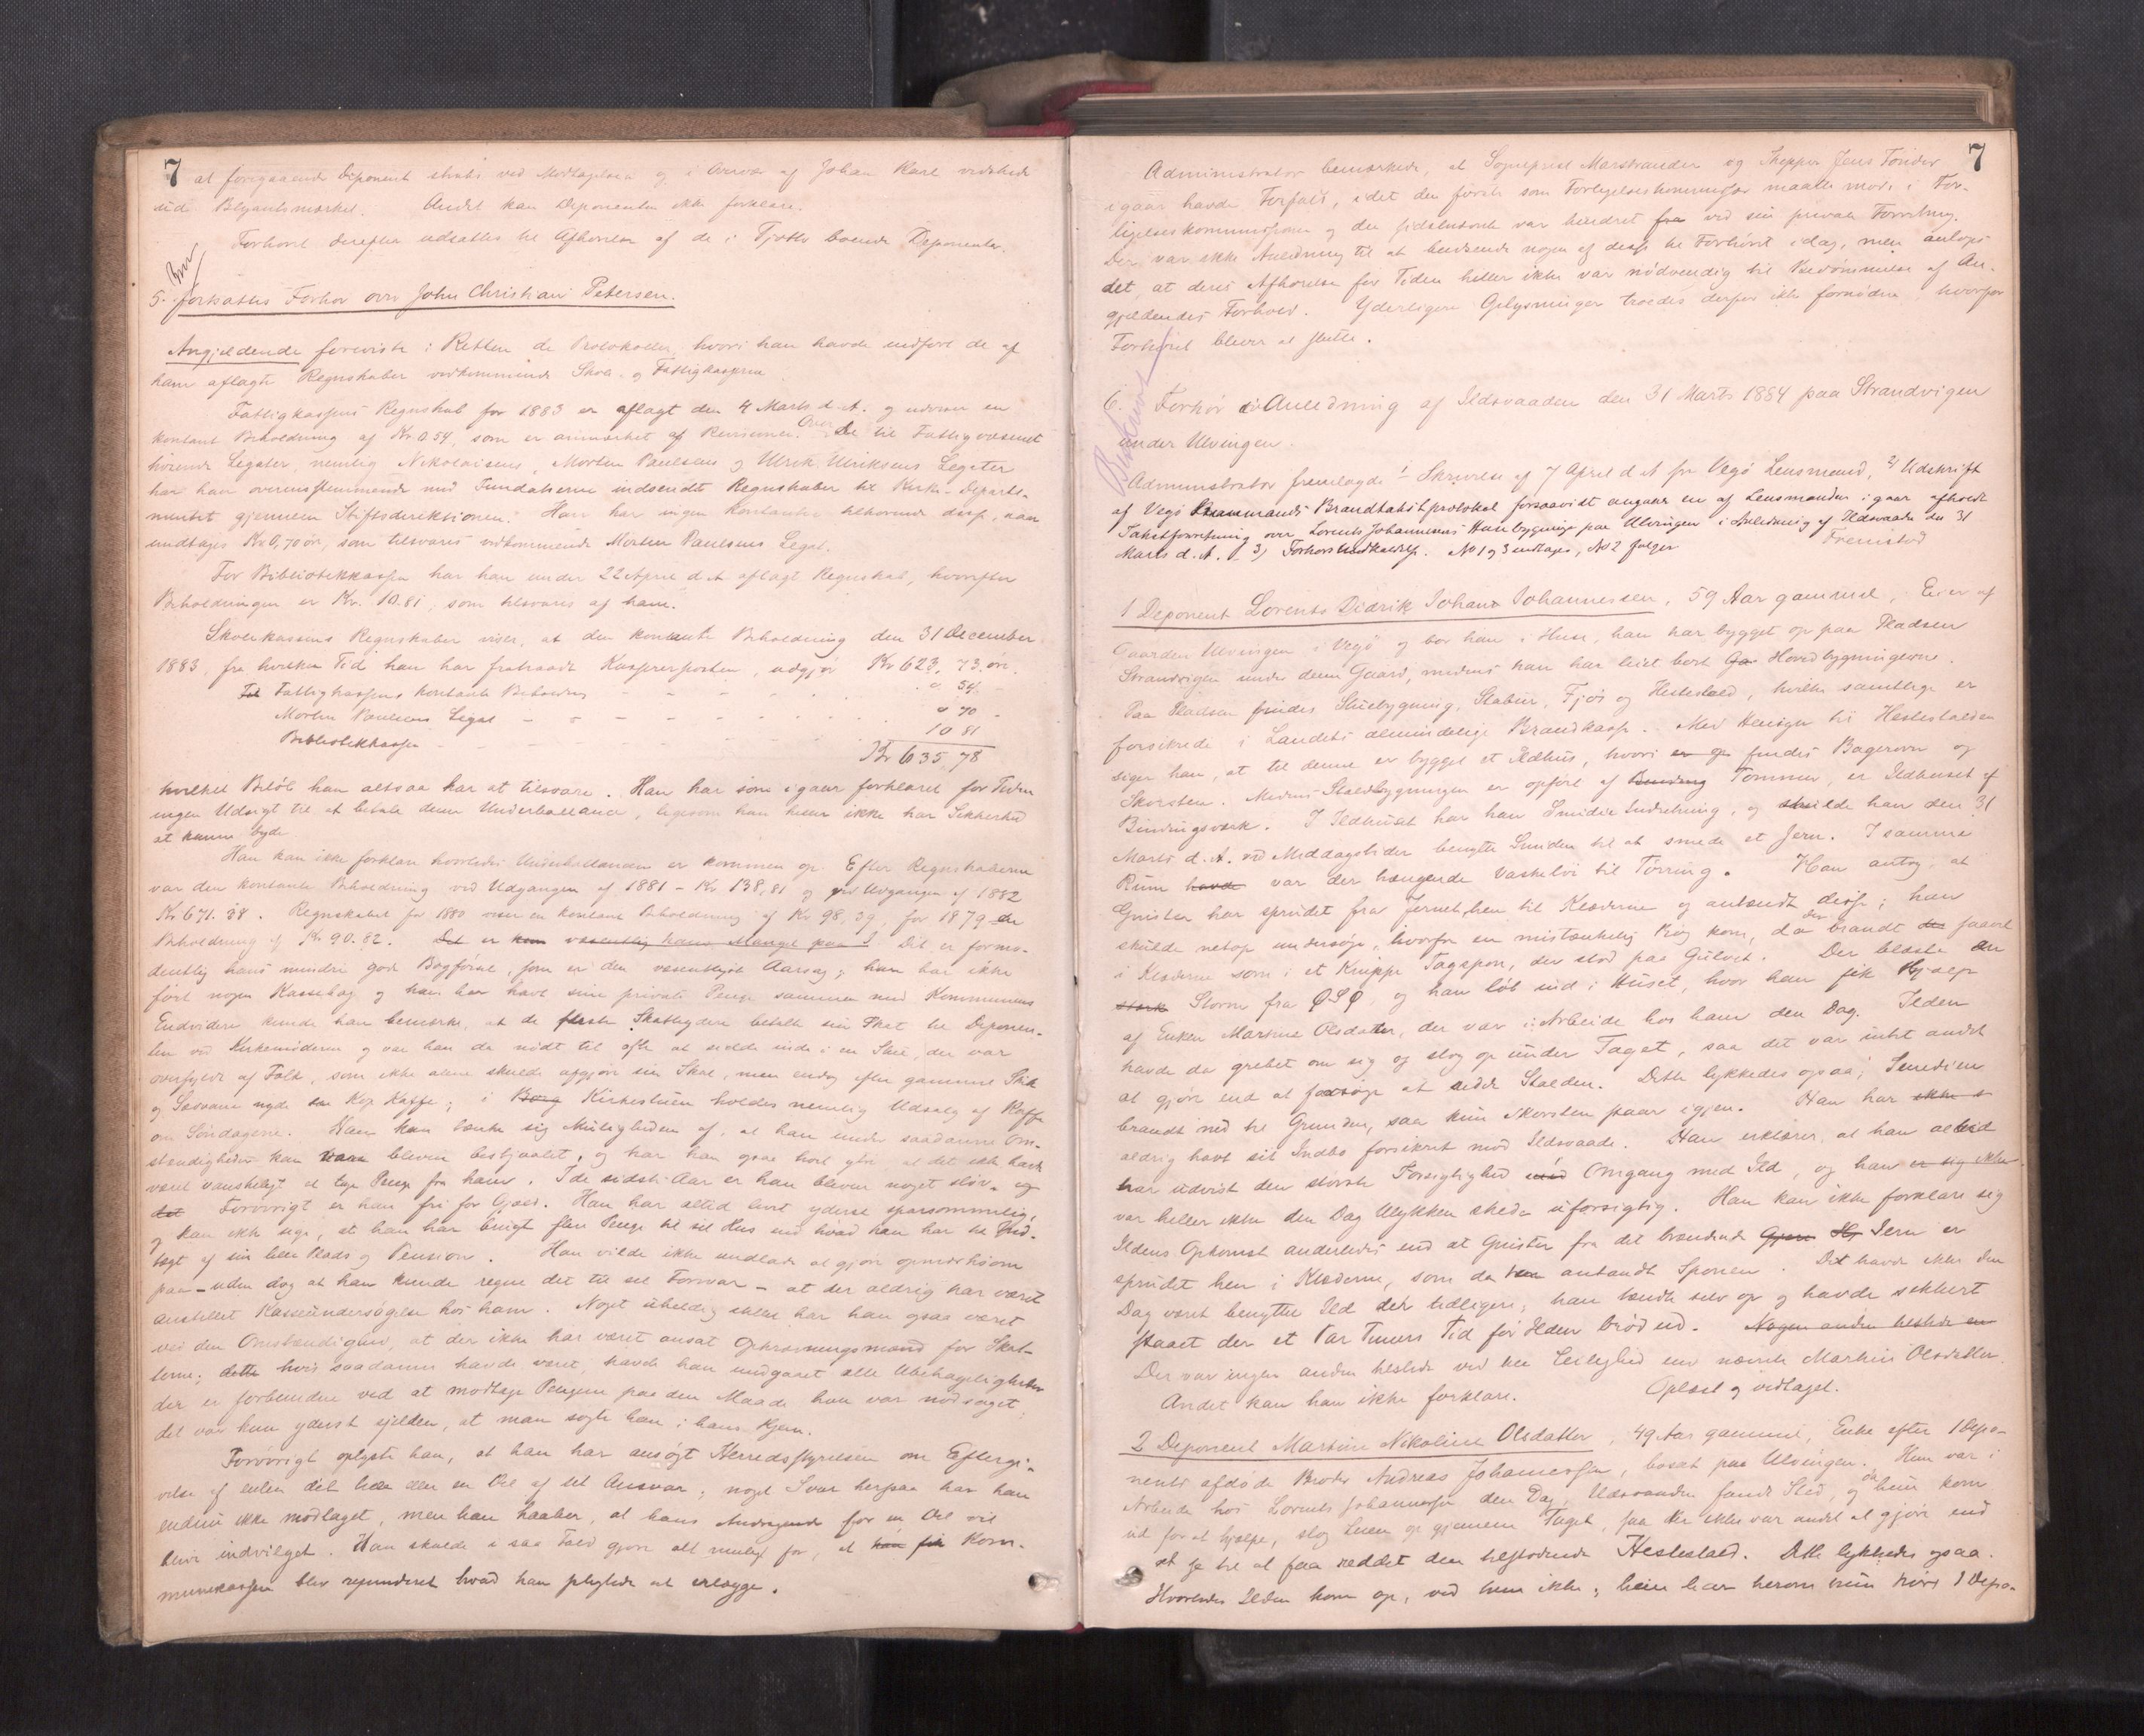 7
at foregaaende Deponent straks ved Modtagelsen og i Overvær af Johan Karl vedskede
sid Blyantsmærket. Andet kan Deponenten ikke forklare.
Forhøret derefter udsattes til Afhørelse af de i Tjøtta boende Deponenter.
5. fortsattes Forhør over John Christian Petersen.
Angjeldende foreviste i Retten de Protokoller, hvori han havde indført de af
ham aflagte Regnskaber vedkommende Skole- og Fattigkasserne
Fattigkassens Regnskab for 1883 er aflagt den 4 Marts d. A. og udviser en
kontant Beholdning af Kr 0.54, som er anmærket af Revisionen. Over De til Fattigvæsenet
hørende Legater, nemlig Nikolaisens, Morten Paulsens og Ulrik Ulriksens Legater
har han overensstemmende med Fundatserne indsendt Regnskaber til Kirke-Departe-
mentet gjennem Stiftsdirektionen. Han har ingen Kontanter tilhørende disse, naar
undtages Kr 0,70 øre, som tilsvares vedkommende Morten Paulsens Legat.
For Bibliotekkassen har han under 22 April d A aflagt Regnskab, hvorefter
Beholdningen er Kr. 10.81, som tilsvares af ham.
Skolekassens Regnskaber viser, at den kontante Beholdning den 31 December
1883, fra hvilken Tid han har fratraadt Kassererposten, udgjør Kr 623. 73 øre.
Til Fattigkassens kontante Beholdning - - - - - " 54 -
Morten Paulsens Legat - - - - - " 70 -
Bibliotekkassen - - - - - 10 81
Kr 635 78
hvilket Beløb han altsaa har at tilsvare. Han har som igaar forklaret for Tiden
ingen Udsigt til at betale denne Underballance, ligesom han heller ikke har Sikkerhed
at kunne byde.
Han kan ikke forklare hvorledes Underballancen er kommen op. Efter Regnskaberne
var den kontante Beholdning ved Udgangen af 1881 - Kr 138,81 og ved Udgangen af 1882
Kr 671. 38. Regnskabet for 1880 viser en kontant Beholdning af Kr 98,39, for 1879 en
Beholdning af Kr 90.82. Det er kun væsentlig hans Mangel paa I Det er formo-
dentlig hans mindre gode Bogførsel, som er den væsentligste Aarsag; han har ikke
ført nogen Kassebog og han har havt sine private Penge sammen med Kommunens
Endvidere kunde han bemærke, at de fleste Skatteydere betalte sin Skat til Deponen-
ten ved Kirkemøderne og var han da nødt til ofte at sidde inde i en Stue, der var
overfyldt af Folk, som ikke alene skulde afgjøre sin Skat, men endog efter gammel Skik
og Sædvane nyde en Kop Kaffe; i Borg Kirkestuen holdes nemlig Udsalg af Kaffe
om Søndagene. Han kan tænke sig Muligheden af, at han under saadanne Om-
stændigheder kan være bleven bestjaalet, og har han ogsaa hørt ytre at det ikke havde
været vanskeligt at tage Penge fra ham. I de sidste Aar er han bleven noget sløv. og
det Forøvrigt er han fri for Gjæld. Han har altid levet yderst sparsommelig,
og kan ikke sige, at han har brugt flere Penge til sit Hus end hvad han har til Ind-
tægt af sin lille Plads og Pension. Han vilde ikke undlade at gjøre opmærksom
paa - uden dog at han kunde regne det til sit Forsvar - at der aldrig har været
anstillet Kasseundersøgelse hos ham. Noget uheldig stillet har han ogsaa været
ved den Omstændighed, at der ikke har været ansat Opkrævningsmænd for Skat-
terne; dette hvis saadanne havde været, havde han undgaaet alle Ubehageligheder
der er forbundne ved at modtage Pengene paa den Maade han var nødsaget;
det var kun yderst sjelden, at man søgte ham i hans Hjem.
Forøvrigt oplyste han, at han har ansøgt Herredsstyrelsen om Eftergi-
velse af enten det hele eller en Del af det Ansvar; noget Svar herpaa har han
endnu ikke modtaget, men han haaber, at hans Andragende for en Del vil
blive indvilget. Han skulde i saa Fald gjøre alt muligt for, at han fik Kom-
munekassen blev refunderet hvad han pligtede at erlægge.
7
Administrator bemærkede, at Sogneprest Marstrander og Skipper Jens Tønder
igaar havde Forfald, idet den første som Forligelseskommissær maatte møde i For-
ligelseskommissionen og den sidstnævnte var hindret fra ved sin private Forretning.
Der var ikke Anledning til at henvende nogen af disse til Forhøret idag, men antoges
det, at deres Afhørelse for Tiden heller ikke var nødvendig til Bedømmelse af An-
gjeldendes Forhold. Yderligere Oplysninger troedes derfor ikke fornødne, hvorfor
Forhøret bliver at slutte.
Beskrevet
6. Forhør i Anledning af Ildsvaaden den 31 Marts 1884 paa Strandvigen
under Ulvingen.
Administrator fremlagde 1) Skrivelse af 7 April d A fra Vegø Lensmand, 2) Udskrift
af Vegø Lensmands Brandtakstprotokol forsaavidt angaar en af Lensmanden igaar afholdt
Takstforretning over Lorents Johannesens Husbygninge paa Ulvingen i Anledning af Ildsvaaden den 31
Marts d. A. 3) Forhørsindkaldelse. No 1 og 3 indtages, No 2 følger
Fremstod
1 Deponent Lorents Didrik Johan Johannessen, 59 Aar gammel, Eier af
Gaarden Ulvingen i Vegø og bor han i Huse, han har bygget op paa Pladsen
Strandvigen under denne Gaard, medens han har leiet bort Ga Hovedbygningerne.
Paa Pladsen findes Stuebygning, Stabur, Fjøs og Hestestald, hvilke samtlige er
forsikrede i Landets almindelige Brandkasse. Med Hensyn til Hestestalden
siger han, at til denne er bygget et Ildhus, hvori er op findes Bagerovn og
Skorsten. Medens Staldbygningen er opført af Binding Tømmer, er Ildhuset af
Bindingsværk. I Ildhuset har han Smidie Indretning, og skulde han den 31
Marts d. A. ved Middagstider benytte Smiden til at smede et Jern. I samme
Rum havde var der hængende Vasketøi til Tørring. Han antog, at
Gnister har sprudet fra Jernet hen til Klæderne og antændt disse; han
skulde netop undersøge, hvorfra en mistænkelig Røg kom, da der brandt der saavel
i Klæderne som i et Knippe Tagspon, der stod paa Gulvet. Der blæste en
stærk Storm fra OSO og han løb ind i Huset, hvor han fik Hjælp
af Enken Martine Olsdatter, der var i Arbeide hos ham den Dag. Ilden
havde da grebet om sig og slog op under Taget, saa det var intet andet
at gjøre end at forsøge at redde Stalden. Dette lykkedes ogsaa; Smedien
brandt ned til Grunden, saa kun Skorsten staar igjen. Han har ikke s
aldrig havt sit Indbo forsikret mod Ildsvaade. Han erklærer, at han altid
har udvist den største Forsigtighed med Omgang med Ild, og han er sig ikke
var heller ikke den Dag Ulykken skede uforsigtig. Han kan ikke forklare sig
Ildens Opkomst anderledes end at Gnister fra det brændende Gjen Hj Jern er
sprudet hen i Klæderne, som da han antændt Sponen. Det havde ikke den
Dag været benyttet Ild der tidligere; han tændte selv op og havde sikkert
staaet der et Par Timers Tid før Ilden brød ud. Nogen anden tilstede en
Der var ingen anden tilstede ved den Leilighed end nævnte Martine Olsdatter.
Andet kan han ikke forklare. Oplæst og vedtaget.
2 Deponent Martine Nikoline Olsdatter, 49 Aar gammel, Enke efter 1 Depo-
nents afdøde Broder Andreas Johannessen, bosat paa Ulvingen. Hun var i
Arbeide hos Lorents Johannessen den Dag Ildsvaaden fandt Sted, og da hun kom
ud for at hjælpe, slog Luen op gjennem Taget, saa der ikke var andet at gjøre end
at se til at faa reddet den tilstødende Hestestald. Dette lykkedes ogsaa.
Hvorledes Ilden kom op, ved hun ikke; hun har herom kun hørt 1 Depo-